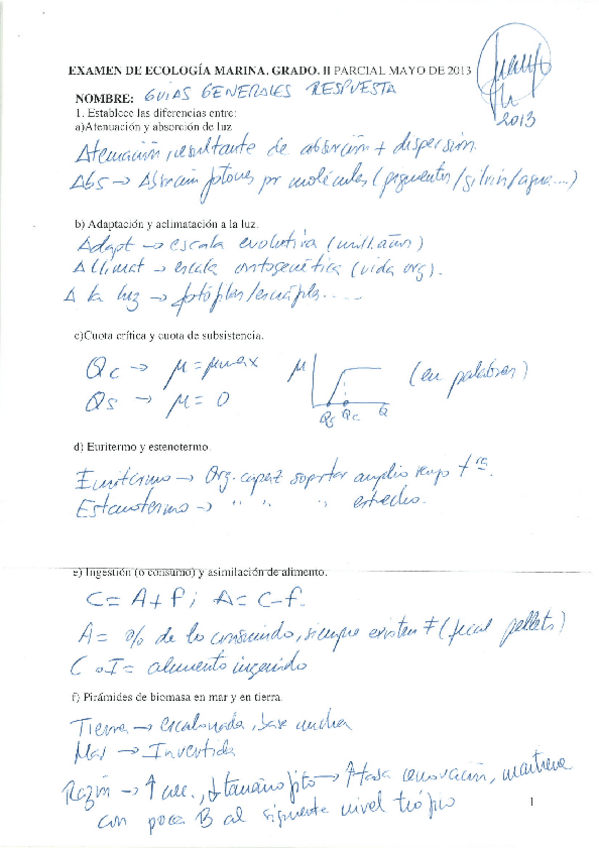 EXAMEN DE ECOLOGÍA MARINA. GRADO. II PARCIAL MAYO DE 2013
2013
NOMBRE: GUIAS GENERALES RESPUESTA
1. Establece las diferencias entre:
a)Atenuación y absorción de luz
Atenuación, resultante de absorción + dispersión.
Abs → Absorción fotones por moléculas (pigmentos/gilvin/agua....)
b) Adaptación y aclimatación a la luz.
Adapt → escala evolutiva (mill. años)
Aclimat → escala ontogenética (vida org).
A la luz →
c)Cuota crítica y cuota de subsistencia.
Qc → μ = μmax
μ
(en palabras)
Qs → μ = 0
Qs Qc Q
d) Euritermo y estenotermo.
Euritermo → Org. capaz soportar amplio rango tª.
Estenotermo → " " " estrecho.
e) Ingestión (o consumo) y asimilación de alimento.
C = A + f ; A = C - f.
A = % de lo consumido, siempre existen f (fecal pellets)
C o I = alimento ingerido
f) Pirámides de biomasa en mar y en tierra.
Tierra → escalonada, base ancha
Mar → Invertida
Razón → ↑ , ↓ tamaño fito → ↑ tasa renovación, mantiene
con poca B al siguiente nivel trófico
1